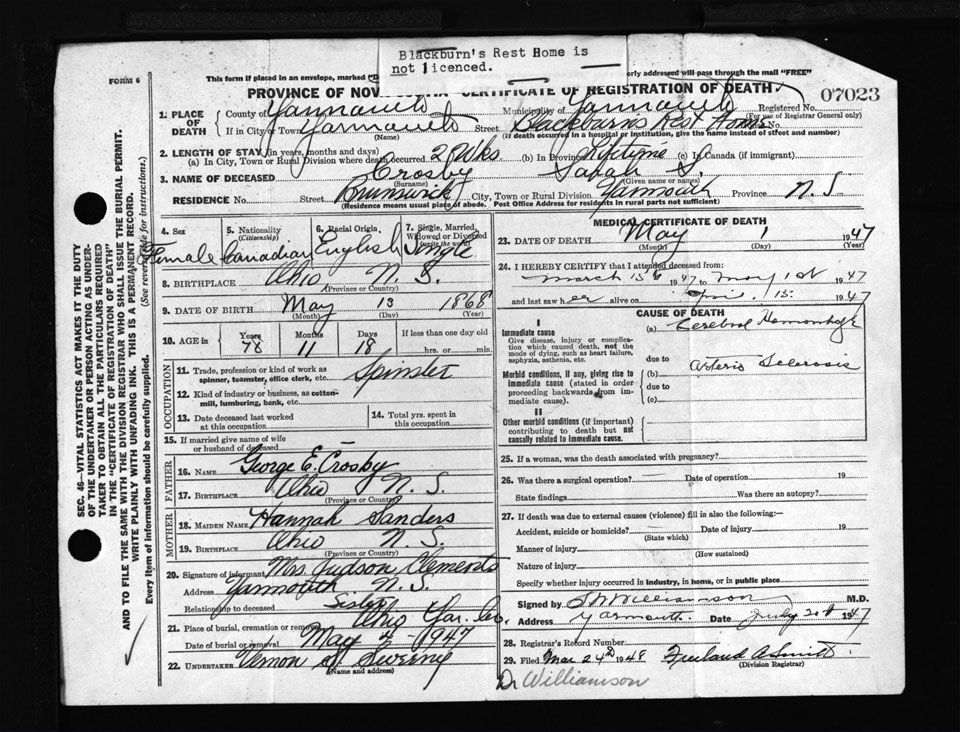 Blackburn's Rest Home is
not licenced.
FORM 6
This form if placed in an envelope, marked "D
erly addressed will pass through the mail "FREE"
PROVINCE OF NOVA SCOTIA CERTIFICATE OF REGISTRATION OF DEATH
07023
1. PLACE OF DEATH County of Yarmouth Municipality of Yarmouth Registered No.
(For use of Registrar General only)
If in City or Town Yarmouth Street Blackburns Rest Home No.
(Name) (If death occurred in a hospital or institution, give the name instead of street and number)
2. LENGTH OF STAY (in years, months and days)
(a) In City, Town or Rural Division where death occurred 2 Wks. (b) In Province Lifetime (c) In Canada (if immigrant)
3. NAME OF DECEASED Crosby Sarah S.
(Surname) (Given name or names)
RESIDENCE No. Street Brunswick City, Town or Rural Division Yarmouth Province N.S
(Residence means usual place of abode. Post Office Address for residents in rural parts not sufficient)
4. Sex Female
5. Nationality (Citizenship) Canadian
6. Racial Origin English
7. Single, Married, Widowed or Divorced (write the word) Single
8. BIRTHPLACE Ohio N. S.
(Province or Country)
9. DATE OF BIRTH May 13 1868
(Month) (Day) (Year)
10. AGE in Years 78 Months 11 Days 18 If less than one day old
hrs. or min.
OCCUPATION
11. Trade, profession or kind of work as spinner, teamster, office clerk, etc. Spinster
12. Kind of industry or business, as cotton-mill, lumbering, bank, etc.
13. Date deceased last worked at this occupation
14. Total yrs. spent in this occupation
15. If married give name of wife or husband of deceased
FATHER
16. NAME George E. Crosby
17. BIRTHPLACE Ohio N. S.
(Province or Country)
MOTHER
18. MAIDEN NAME Hannah Sanders
19. BIRTHPLACE Ohio N. S.
(Province or Country)
20. Signature of informant Mrs. Judson Clements
Address Yarmouth N. S.
Relationship to deceased Sister
21. Place of burial, cremation or removal Ohio Yar. Co.
Date of burial or removal May 4 - 1947
22. UNDERTAKER Vernon S. Sweeny
(Name and address)
MEDICAL CERTIFICATE OF DEATH
23. DATE OF DEATH May 1 1947
(Month) (Day) (Year)
24. I HEREBY CERTIFY that I attended deceased from:
March 15th 1947 to May 1st 1947
and last saw her alive on 15. 1947
CAUSE OF DEATH
I
Immediate cause
Give disease, injury or complication which caused death, not the mode of dying, such as heart failure, asphyxia, asthenia, etc.
(a) Cerebral Hemorrhage
due to
Morbid conditions, if any, giving rise to immediate cause (stated in order proceeding backwards from immediate cause).
(b) Arterio Sclerosis
due to
(c)
II
Other morbid conditions (if important) contributing to death but not causally related to immediate cause.
25. If a woman, was the death associated with pregnancy?
26. Was there a surgical operation? Date of operation 19
State findings Was there an autopsy?
27. If death was due to external causes (violence) fill in also the following:—
Accident, suicide or homicide? Date of injury 19
(State which)
Manner of injury
(How sustained)
Nature of injury
Specify whether injury occurred in industry, in home, or in public place
Signed by Williamson M.D.
Address Yarmouth Date July 20th 1947
28. Registrar's Record Number
29. Filed Mar 24th 1948 Freeland A Smith
(Division Registrar)
Dr Williamson
SEC. 46—VITAL STATISTICS ACT MAKES IT THE DUTY
OF THE UNDERTAKER OR PERSON ACTING AS UNDER-
TAKER TO OBTAIN ALL THE PARTICULARS REQUIRED
IN THE "CERTIFICATE OF REGISTRATION OF DEATH"
AND TO FILE THE SAME WITH THE DIVISION REGISTRAR WHO SHALL ISSUE THE BURIAL PERMIT.
WRITE PLAINLY WITH UNFADING INK. THIS IS A PERMANENT RECORD.
Every item of information should be carefully supplied. (See reverse side for instructions.)